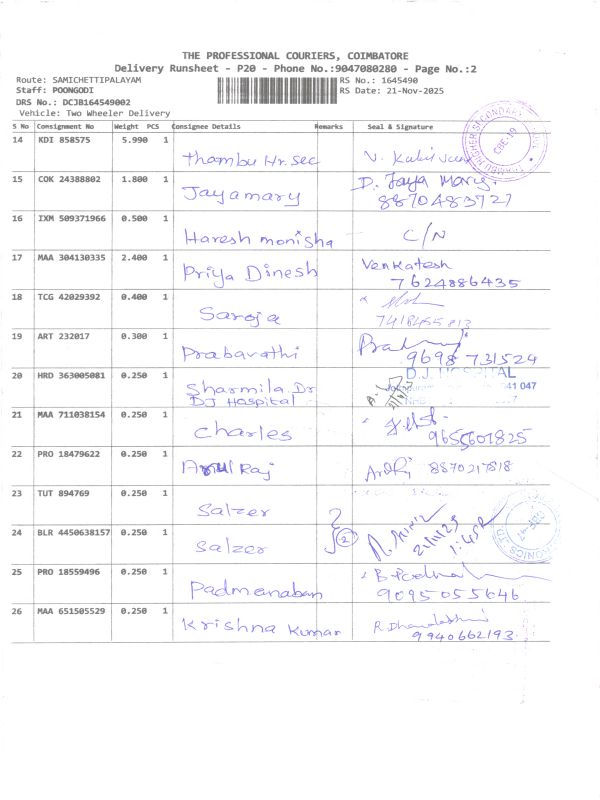 THE PROFESSIONAL COURIERS, COIMBATORE
Delivery Runsheet - P20 - Phone No.:9047080280 - Page No.:2
Route: SAMICHETTIPALAYAM RS No.: 1645490
Staff: POONGODI RS Date: 21-Nov-2025
DRS No.: DCJB164549002
Vehicle: Two Wheeler Delivery
S No Consignment No Weight PCS Consignee Details Remarks Seal & Signature
14 KDI 858575 5.990 1 Thambu Hr. Sec
15 COK 24388802 1.800 1 Jayamary D. Jaya Mary. 8870483727
16 IXM 509371966 0.500 1 Haresh monisha C/N
17 MAA 304130335 2.400 1 Priya Dinesh Venkatesh 7624886435
18 TCG 42029392 0.400 1 Saroja 7418455813
19 ART 232017 0.300 1 Prabavathi 9698 731524
20 HRD 363005081 0.250 1 Sharmila Dr D.J. HOSPITAL
DJ Hospital 041 047
21 MAA 711038154 0.250 1 Charles 9655601825
22 PRO 18479622 0.250 1 Arul Raj 8870217818
23 TUT 894769 0.250 1 Salzer
24 BLR 4450638157 0.250 1 Salzer 2 21/11/25 1:45
25 PRO 18559496 0.250 1 Padmanaban 9095055646
26 MAA 651505529 0.250 1 Krishna Kumar 9940662193